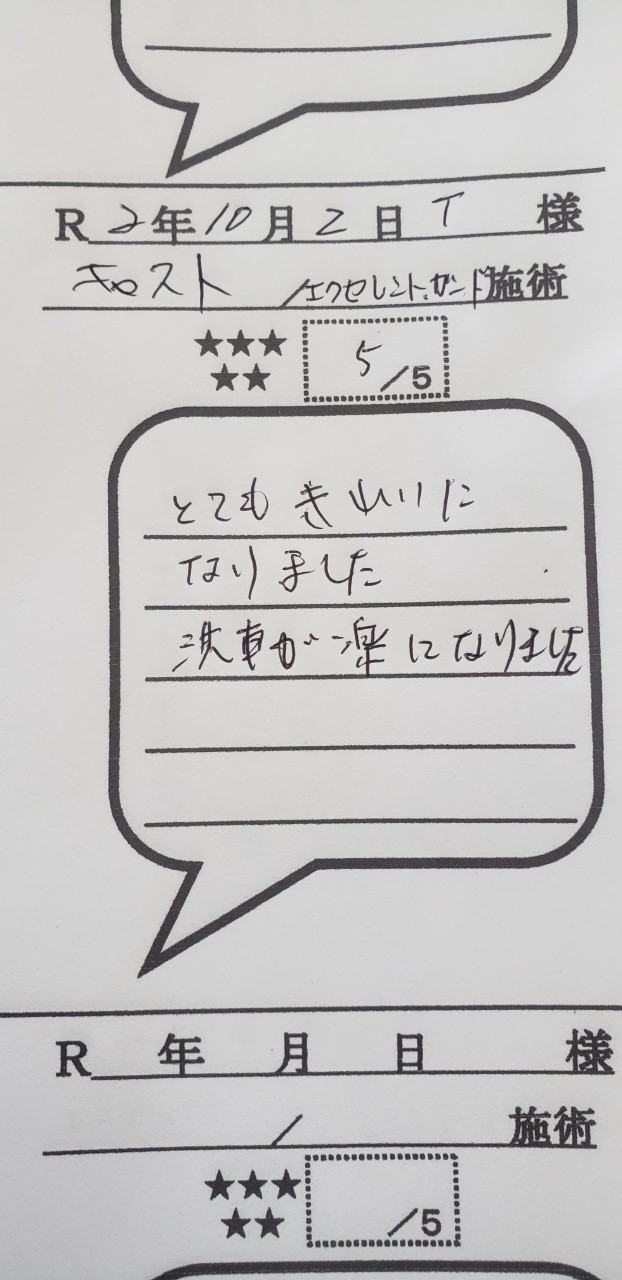 R 2年10月2日 T 様
キャスト /エクセレントガード施術
★★★
★★
5/5
とてもきれいに
なりました
洗車が楽になりました
R 年 月 日 様
/ 施術
★★★
★★
/5